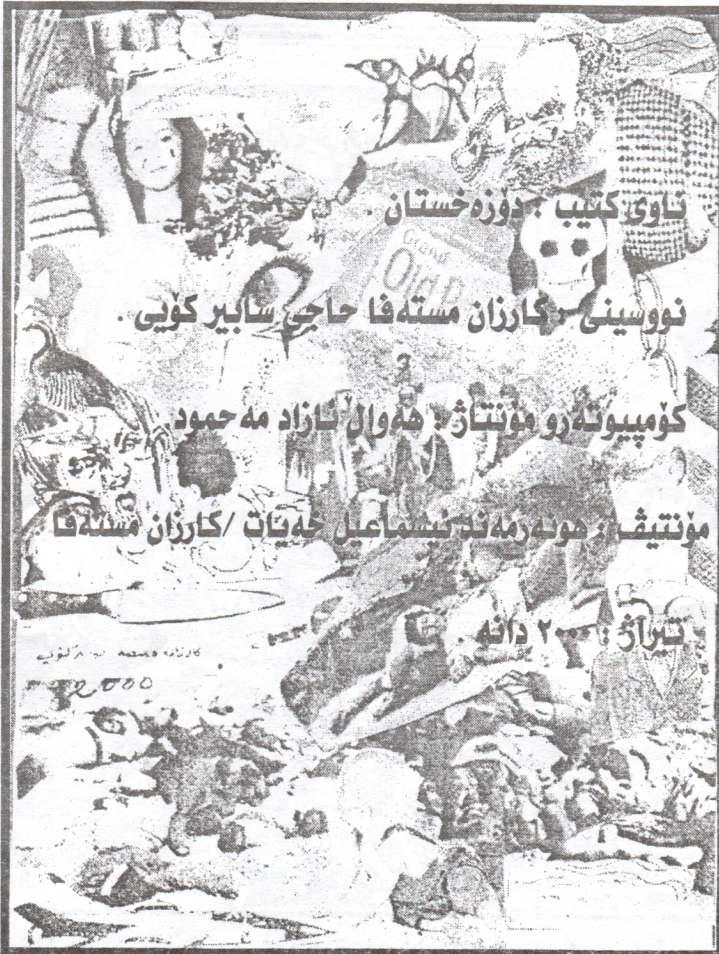 ناوی کتێب : دۆزەخستان .
Grand
Old
نووسینی : کارزان مستەفا حاجی سابیر کۆیی .
کۆمپیوتەرو مۆنتاژ : هەواڵ ئازاد مەحمود .
مۆنتیڤ : هونەرمەند ئیسماعیل خەیات /کارزان مستەفا
تیراژ : ٢٠٠٠ دانە .
2000